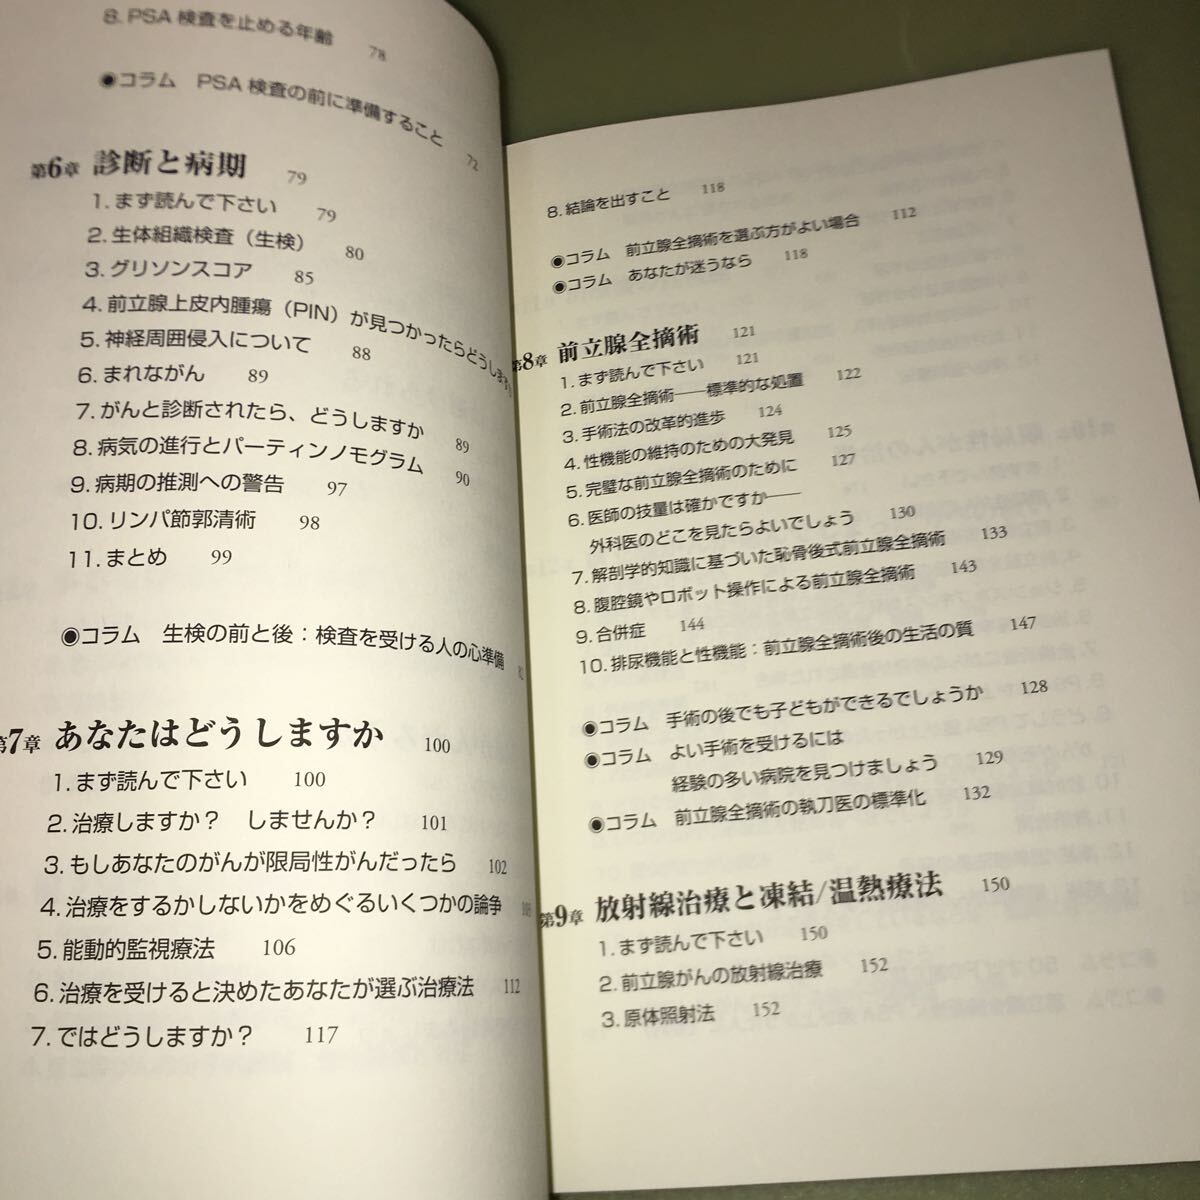 8. PSA 検査を止める年齢 78
◉コラム PSA 検査の前に準備すること 72
第6章 診断と病期 79
1. まず読んで下さい 79
2. 生体組織検査（生検） 80
3. グリソンスコア 85
4. 前立腺上皮内腫瘍（PIN）が見つかったらどうします
5. 神経周囲侵入について 88
6. まれながん 89
7. がんと診断されたら、どうしますか 89
8. 病気の進行とパーティンノモグラム 90
9. 病期の推測への警告 97
10. リンパ節郭清術 98
11. まとめ 99
◉コラム 生検の前と後：検査を受ける人の心準備 82
第7章 あなたはどうしますか 100
1. まず読んで下さい 100
2. 治療しますか？ しませんか？ 101
3. もしあなたのがんが限局性がんだったら 102
4. 治療をするかしないかをめぐるいくつかの論争 105
5. 能動的監視療法 106
6. 治療を受けると決めたあなたが選ぶ治療法 112
7. ではどうしますか？ 117
8. 結論を出すこと 118
◉コラム 前立腺全摘術を選ぶ方がよい場合 112
◉コラム あなたが迷うなら 118
第8章 前立腺全摘術 121
1. まず読んで下さい 121
2. 前立腺全摘術——標準的な処置 122
3. 手術法の改革的進歩 124
4. 性機能の維持のための大発見 125
5. 完璧な前立腺全摘術のために 127
6. 医師の技量は確かですか——
外科医のどこを見たらよいでしょう 130
7. 解剖学的知識に基づいた恥骨後式前立腺全摘術 133
8. 腹腔鏡やロボット操作による前立腺全摘術 143
9. 合併症 144
10. 排尿機能と性機能：前立腺全摘術後の生活の質 147
◉コラム 手術の後でも子どもができるでしょうか 128
◉コラム よい手術を受けるには
経験の多い病院を見つけましょう 129
◉コラム 前立腺全摘術の執刀医の標準化 132
第9章 放射線治療と凍結/温熱療法 150
1. まず読んで下さい 150
2. 前立腺がんの放射線治療 152
3. 原体照射法 152